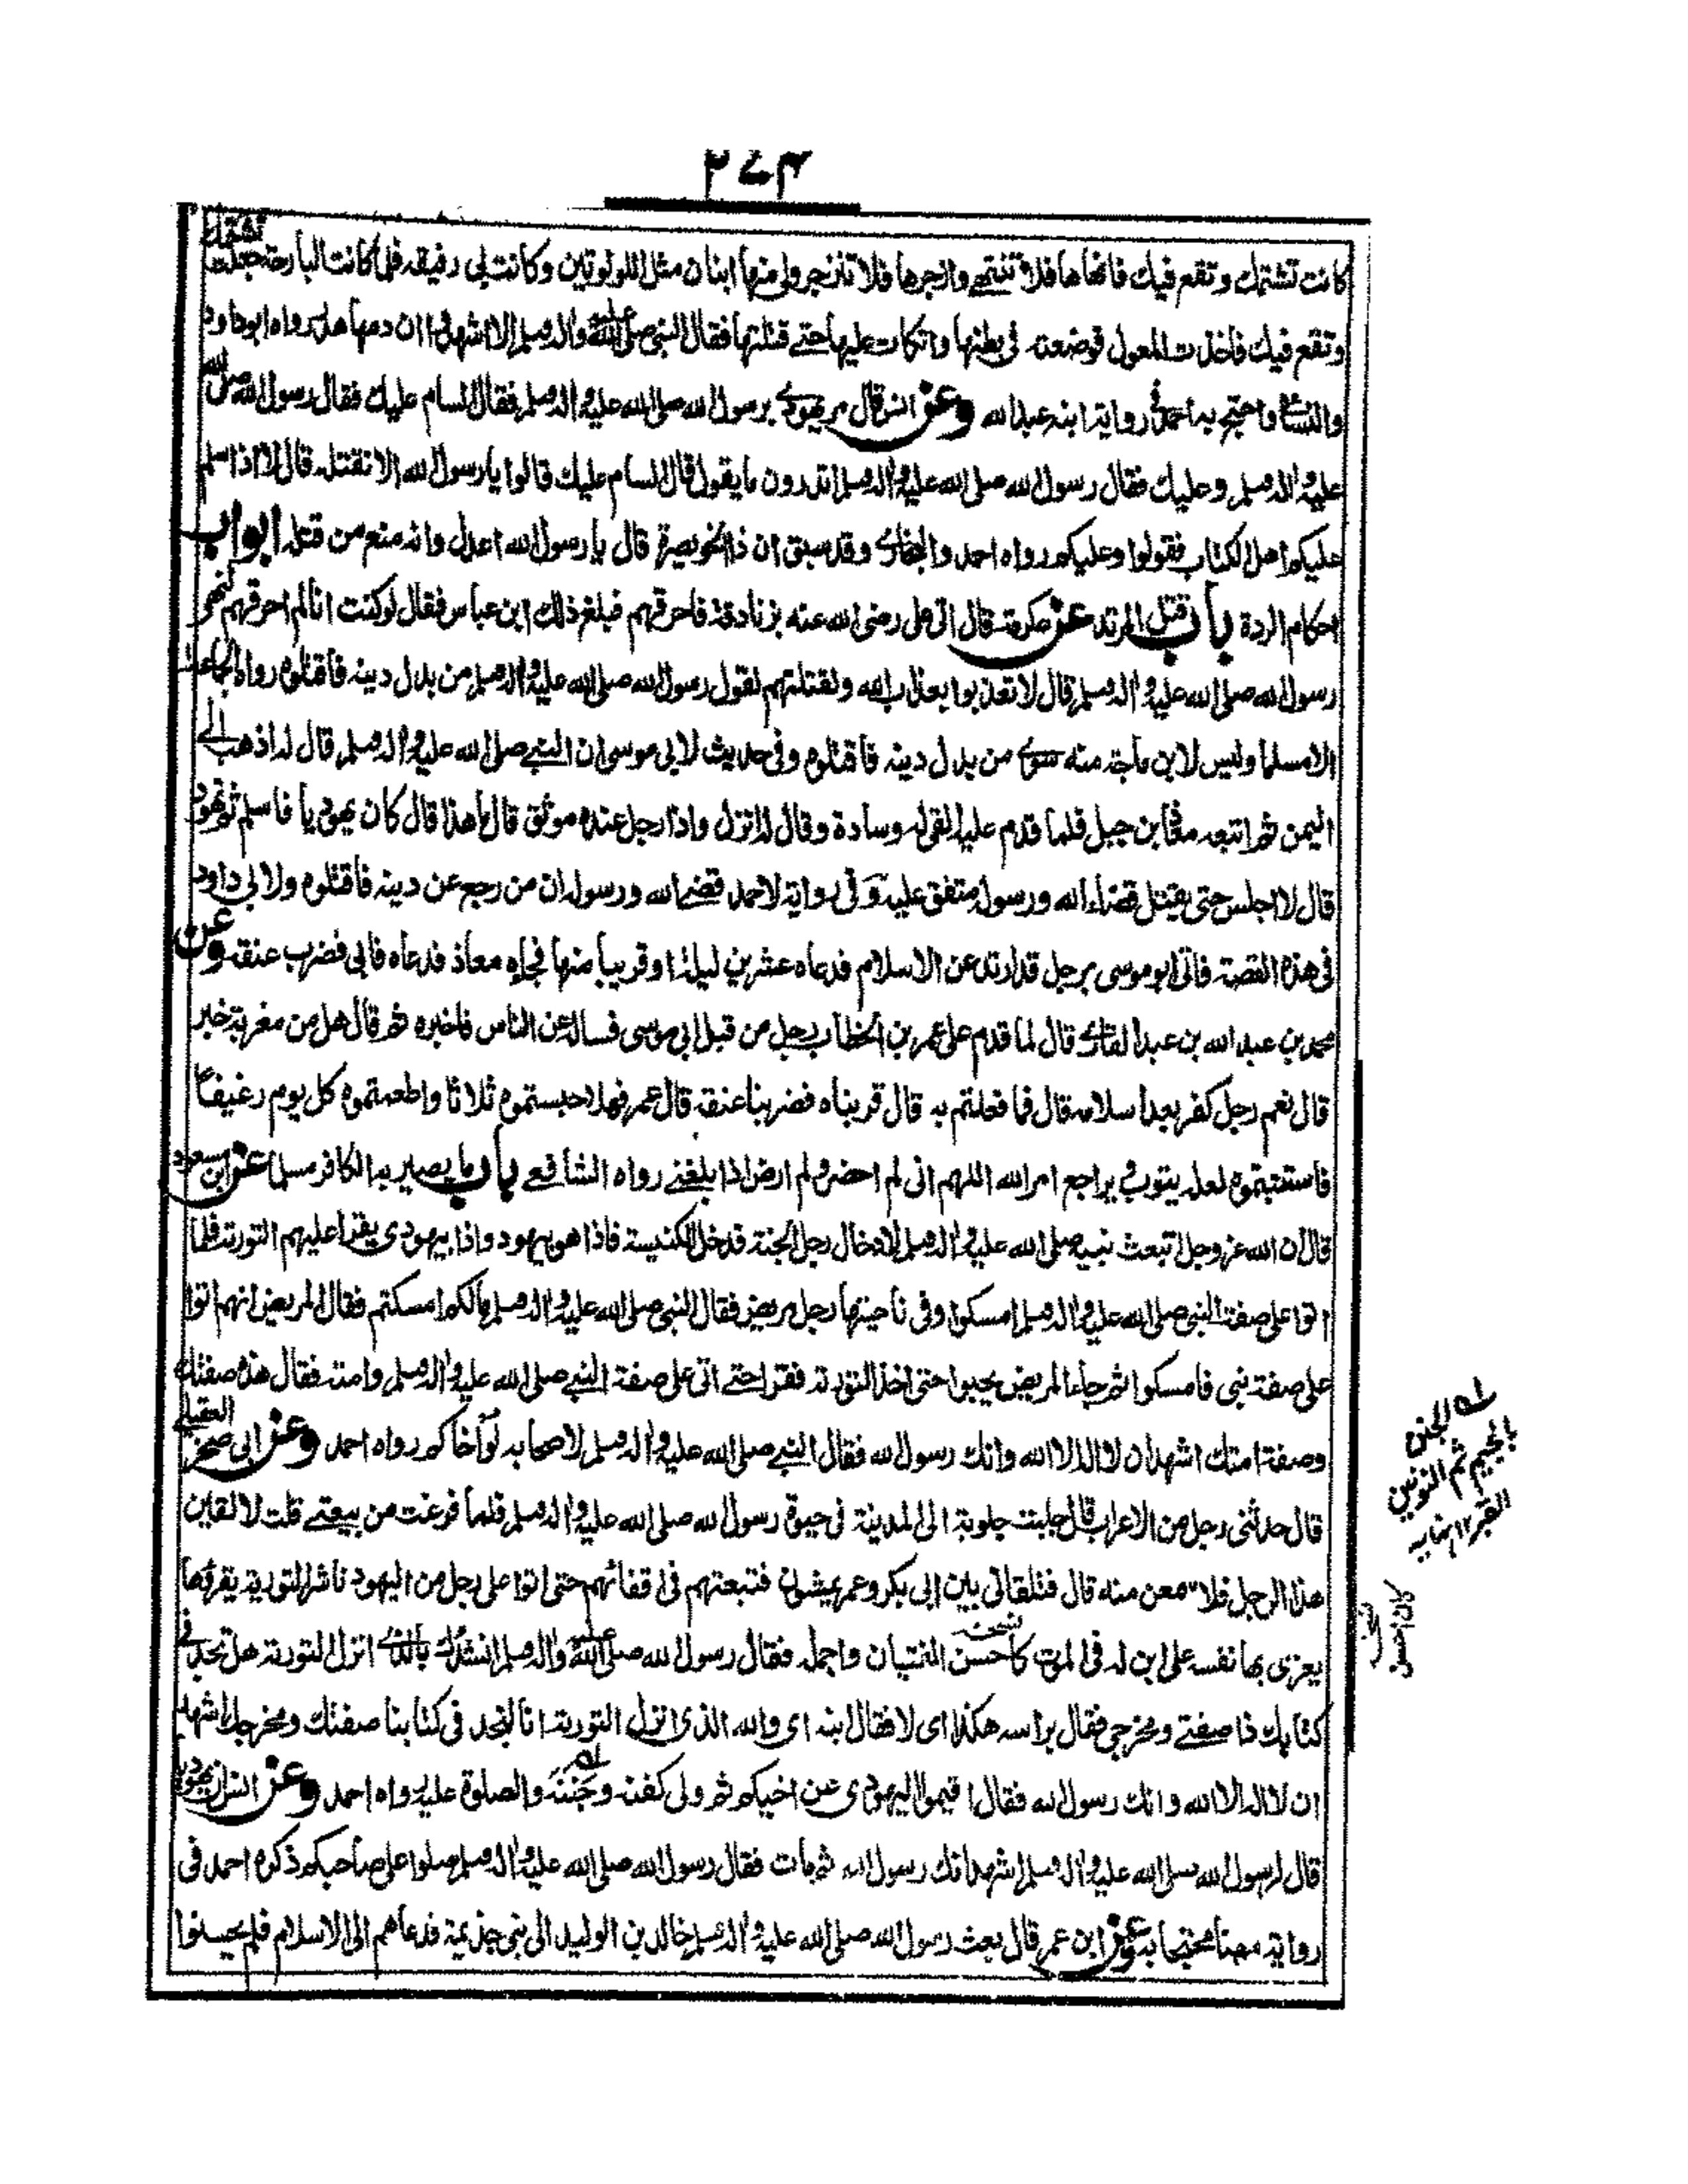 ٢٧٣
كانت تشتمك وتقع فيك فانهاها فلا تنتهي وازجرها فلا تنزجر ولي منها ابنان مثل اللولوتين وكانت بي رفيقة فلما كانت البارحة جعلت تشتمك
وتقع فيك فاخذت المعول فوضعته في بطنها واتكات عليها حتى قتلتها فقال النبي صلى الله عليه واله وسلم الا اشهدوا ان دمها هدر رواه ابو داود
والنسائي واحتج به احمد في رواية ابنه عبد الله وعن انس قال مر يهودي برسول الله صلى الله عليه واله وسلم فقال السام عليك فقال رسول الله صلى الله
عليه واله وسلم وعليك فقال رسول الله صلى الله عليه واله وسلم اتدرون ما يقول قال السام عليك قالوا يا رسول الله الا نقتله قال لا اذا سلم
عليكم اهل الكتاب فقولوا وعليكم رواه احمد والبخاري وقد سبق ان ذا الخويصرة قال يا رسول الله اعدل وانه منع من قتله ابواب
احكام الردة باب قتل المرتد عن عكرمة قال اتي علي رضي الله عنه بزنادقة فاحرقهم فبلغ ذلك ابن عباس فقال لو كنت انا لم احرقهم لنهي
رسول الله صلى الله عليه واله وسلم قال لا تعذبوا بعذاب الله ولقتلتهم لقول رسول الله صلى الله عليه واله وسلم من بدل دينه فاقتلوه رواه الجماعة
الا مسلما وليس لابن ماجة منه سوى من بدل دينه فاقتلوه وفي حديث لابي موسى ان النبي صلى الله عليه واله وسلم قال له اذهب الى
اليمن ثم اتبعه معاذ بن جبل فلما قدم عليه القى له وسادة وقال له انزل واذا رجل عنده موثق قال ما هذا قال كان يهوديا فاسلم ثم تهود
قال لا اجلس حتى يقتل قضاء الله ورسوله متفق عليه وفي رواية لاحمد قضى الله ورسوله ان من رجع عن دينه فاقتلوه ولابي داود
في هذه القصة فاتي ابو موسى برجل قد ارتد عن الاسلام فدعاه عشرين ليلة او قريبا منها فجاء معاذ فدعاه فابى فضرب عنقه وعن
محمد بن عبد الله بن عبد القاري قال لما قدم على عمر بن الخطاب رجل من قبل ابي موسى فساله عن الناس فاخبره ثم قال هل من مغربة خبر
قال نعم رجل كفر بعد اسلامه قال فما فعلتم به قال قربناه فضربنا عنقه قال عمر فهلا حبستموه ثلاثا واطعمتموه كل يوم رغيفا
فاستتبتموه لعله يتوب ويراجع امر الله اللهم اني لم احضر ولم ارض اذا بلغني رواه الشافعي باب ما يصير به الكافر مسلما عن ابن مسعود
قال ان الله عز وجل ابتعث نبيه صلى الله عليه واله وسلم لادخال رجل الجنة فدخل الكنيسة فاذا هو بيهود واذا بيهودي يقرا عليهم التورية فلما
اتوا على صفة النبي صلى الله عليه واله وسلم امسكوا وفي ناحيتها رجل مريض فقال النبي صلى الله عليه واله وسلم ما لكم امسكتم فقال المريض انهم اتوا
على صفة نبي فامسكوا ثم جاء المريض يحبوا حتى اخذ التورية فقرا حتى اتى على صفة النبي صلى الله عليه واله وسلم وامته فقال هذه صفتك
وصفة امتك اشهد ان لا اله الا الله وانك رسول الله فقال النبي صلى الله عليه واله وسلم لاصحابه لوا اخاكم رواه احمد وعن ابي صخر العقيلي
قال حدثني رجل من الاعراب قال جلبت جلوبة الى المدينة في حيوة رسول الله صلى الله عليه واله وسلم فلما فرغت من بيعتي قلت لالقين
هذا الرجل فلاسمعن منه قال فتلقاني بين ابي بكر وعمر يمشون فتبعتهم في اقفائهم حتى اتوا على رجل من اليهود ناشر التورية يقرؤها
يعزي بها نفسه على ابن له في الموت كاحسن الفتيان واجمله فقال رسول الله صلى الله عليه واله وسلم انشدك بالذي انزل التورية هل تجد في
كتابك ذا صفتي ومخرجي فقال براسه هكذا اي لا فقال ابنه اي والله الذي انزل التورية انا لنجد في كتابنا صفتك ومخرجك اشهد
ان لا اله الا الله وانك رسول الله فقال اقيموا اليهودي عن اخيكم ثم ولى كفنه وجننه والصلوة عليه رواه احمد وعن انس ان يهوديا
قال لرسول الله صلى الله عليه واله وسلم اشهد انك رسول الله ثم مات فقال رسول الله صلى الله عليه واله وسلم صلوا على صاحبكم ذكره احمد في
رواية مهنا محتجا به وعن ابن عمر قال بعث رسول الله صلى الله عليه واله وسلم خالد بن الوليد الى بني جذيمة فدعاهم الى الاسلام فلم يحسنوا
له الجنن
بالجيم ثم النونين
القبر ١٢ نهايه
كان احسن